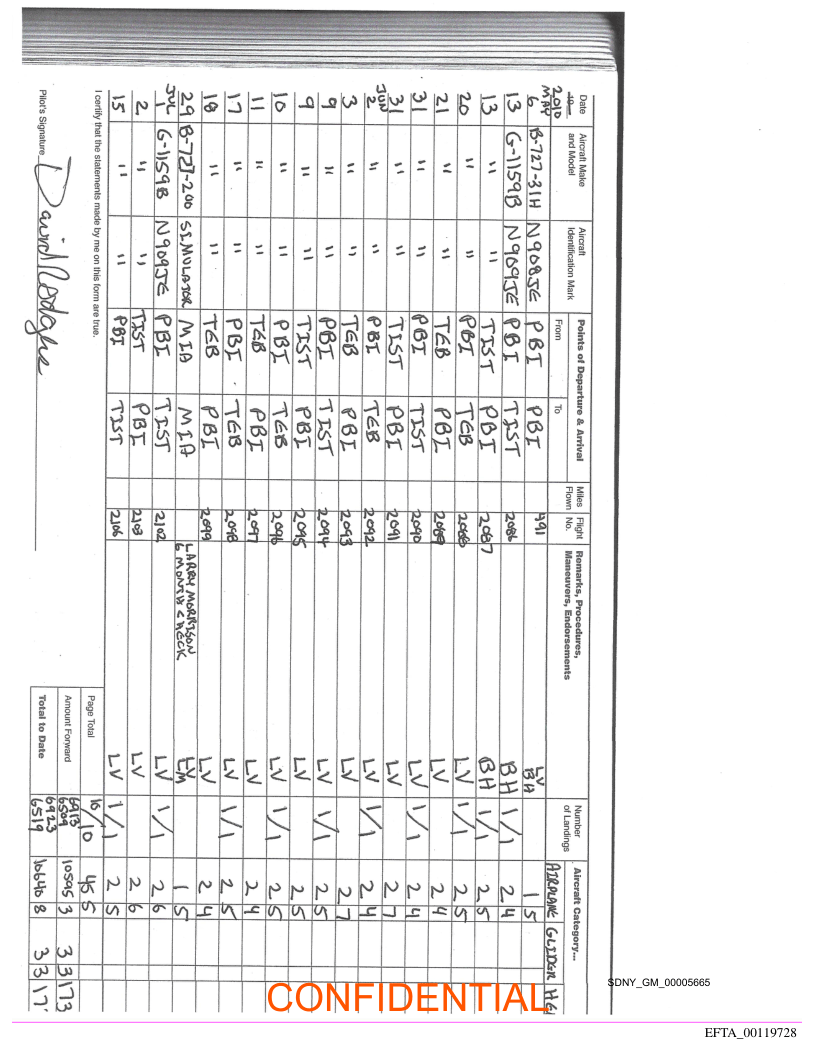 Date Aircraft Make and Model Aircraft Identification Mark Points of Departure & Arrival From To Miles Flown Flight No. Remarks, Procedures, Maneuvers, Endorsements Number of Landings Aircraft Category...
2010 AIRPLANE GLIDER
MAY 6 B-727-31H N908JE PBI PBI 491 LV BH 1 5
13 G-1159B N909JE PBI TIST 2086 BH 1/1 2 4
13 " " TIST PBI 2087 BH 1/1 2 5
20 " " PBI TEB 2088 LV 1/1 2 5
21 " " TEB PBI 2089 LV 2 4
31 " " PBI TIST 2090 LV 1/1 2 4
31 " " TIST PBI 2091 LV 2 7
JUN 2 " " PBI TEB 2092 LV 1/1 2 4
3 " " TEB PBI 2093 LV 2 7
9 " " PBI TIST 2094 LV 1/1 2 5
9 " " TIST PBI 2095 LV 2 5
10 " " PBI TEB 2096 LV 1/1 2 5
11 " " TEB PBI 2097 LV 2 4
17 " " PBI TEB 2098 LV 1/1 2 5
18 " " TEB PBI 2099 LV 2 4
29 B-727-200 SIMULATOR MIA MIA LARRY MORRISON 6 MONTH CHECK LV LM 1 5
JUL 1 G-1159B N909JE PBI TIST 2102 LV 1/1 2 6
2 " " TIST PBI 2103 LV 2 6
15 " " PBI TIST 2106 LV 1/1 2 5
I certify that the statements made by me on this form are true.
Page Total 10/10 45 5
Amount Forward 6913 6509 10595 3 3 3173
Total to Date 6923 6519 10640 8 3 317
Pilot's Signature David Rodgers
SDNY_GM_00005665
CONFIDENTIAL
EFTA_00119728